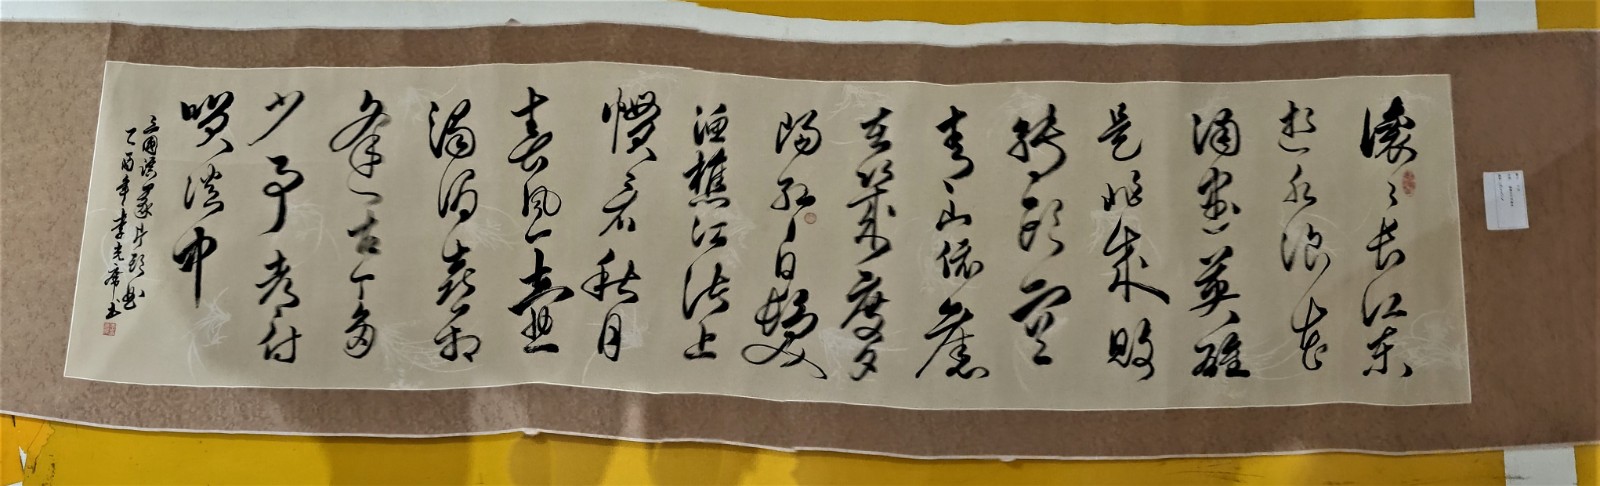 滚滚长江东
逝水浪花
淘尽英雄
是非成败
转头空
青山依旧
在几度夕
阳红白发
渔樵江渚上
惯看秋月
春风一壶
浊酒喜相
逢古今多
少事都付
笑谈中
三国演义片头曲
乙酉年李光席书